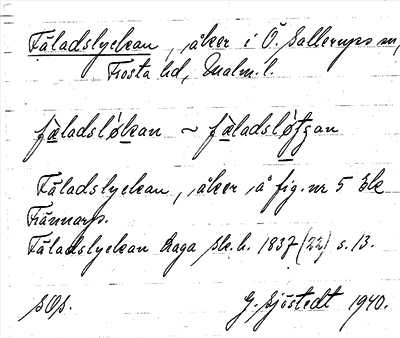 Fäladslyckan, åker i Ö. Sallerups sn,
Frosta hd, Malm. l.
fæladsløkan ~ fæladsløfgan
Fäladslyckan, åker å fig. nr 5 Ek
Trännarp.
Fäladslyckan Laga sk. h. 1837 (22) s. 13.
sOs. G. Sjöstedt 1940.